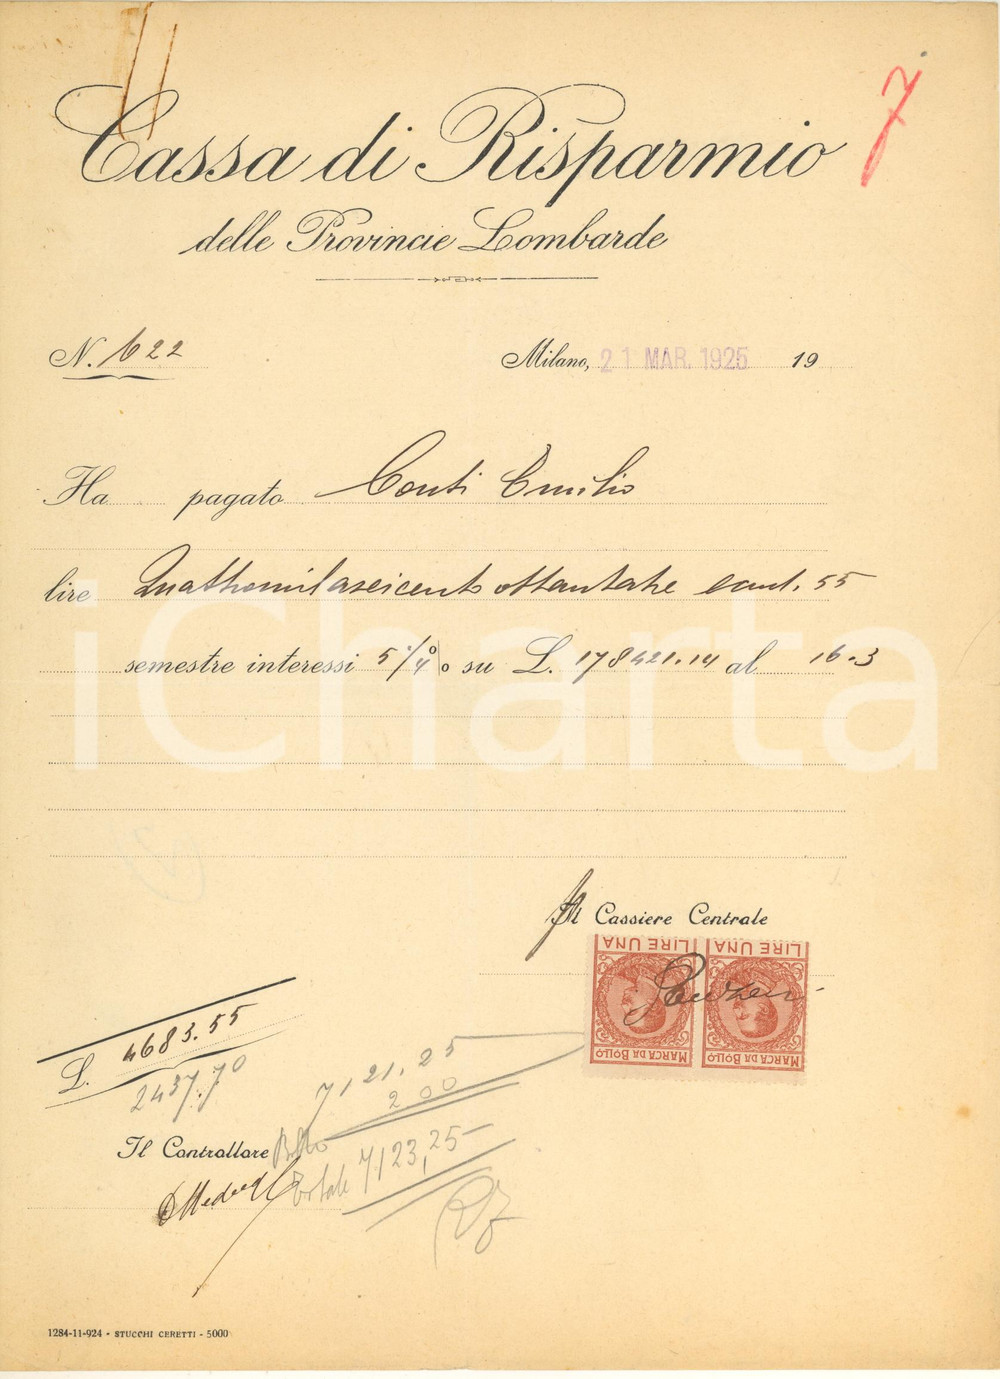 7
Cassa di Risparmio
delle Provincie Lombarde
N. 622
Milano, 21 MAR. 1925 19
Ha pagato Conti Emilio
lire Quattromilaseicento ottantatre cent. 55
semestre interessi 5 1/4 % su L. 178421.14 al 16.3
iCharta
Il Cassiere Centrale
LIRE UNA LIRE UNA
MARCA DA BOLLO MARCA DA BOLLO
L. 4683.55
2437.70
7121,25
Bollo 2 00
Totale 7123,25
Il Controllore
1284-11-924 - STUCCHI CERETTI - 5000